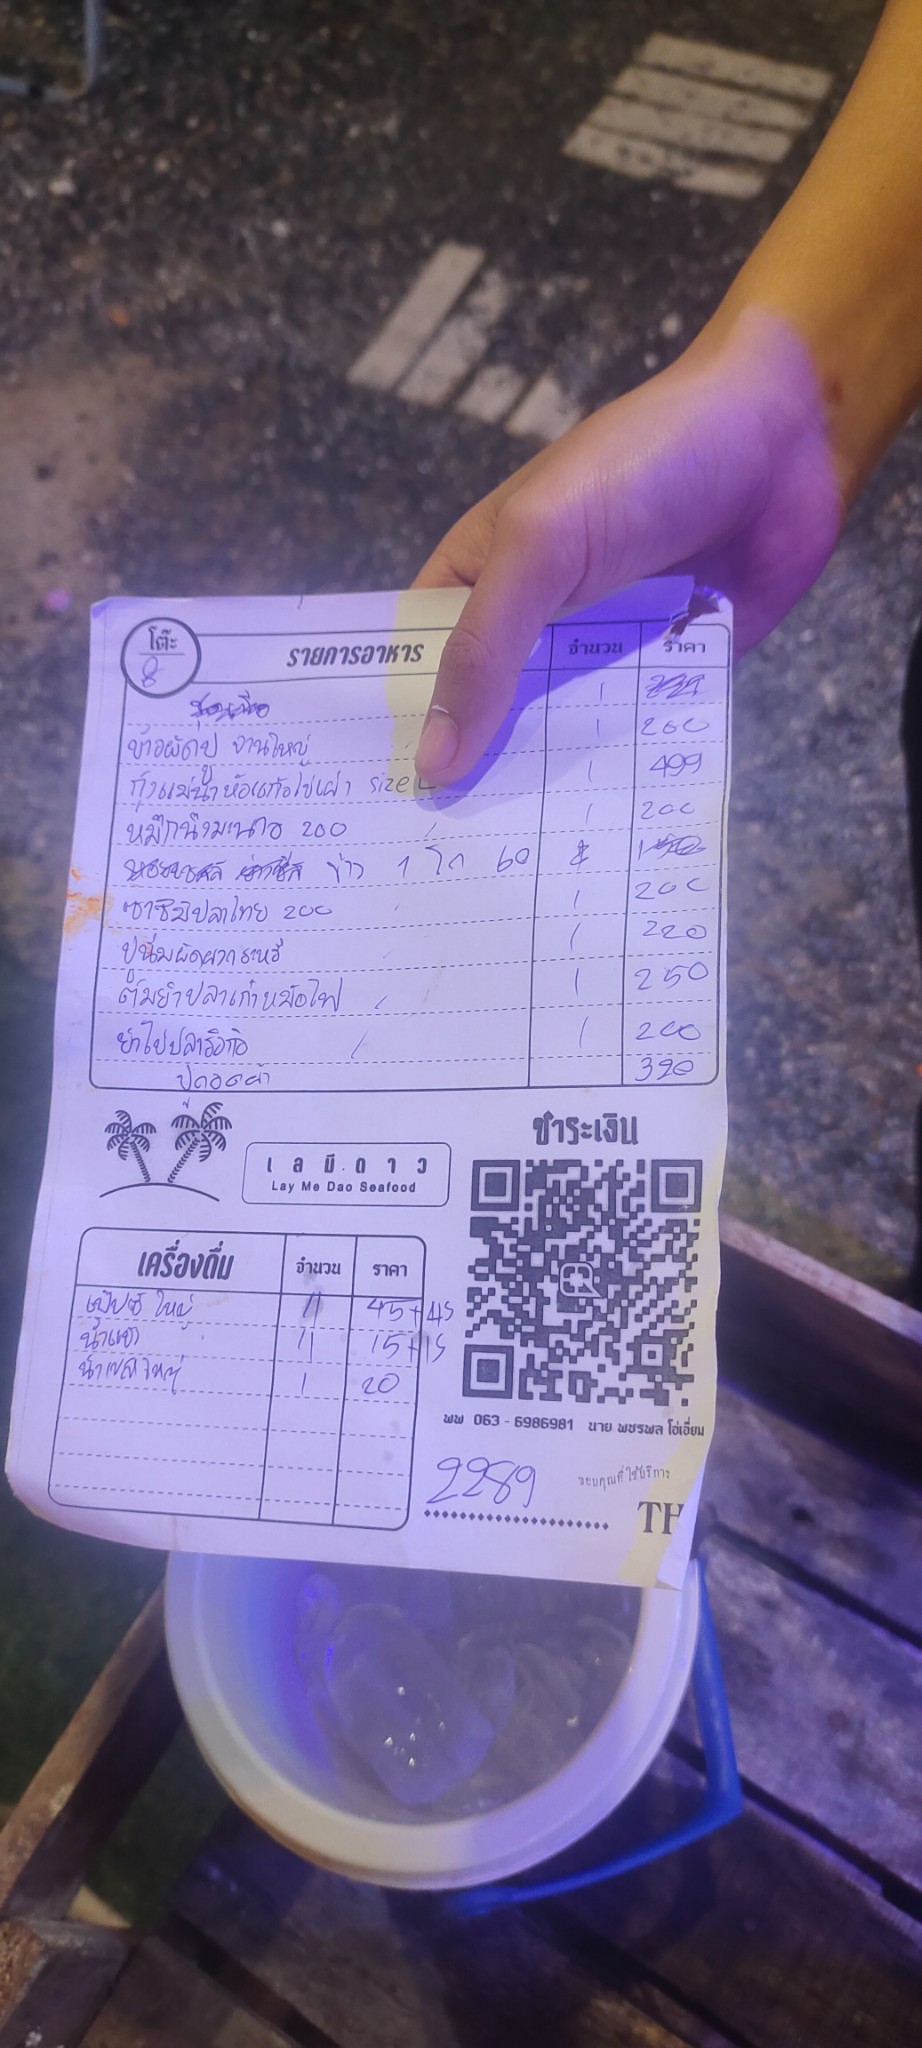 โต๊ะ
8
รายการอาหาร จำนวน ราคา
1
ข้าวผัดปู จานใหญ่ 1 200
กุ้งแม่น้ำ size L 1 499
หมึกนึ่งมะนาว 200 1 200
ข้าว 1 โถ 60
ซาซิมิปลาไทย 200 1 200
ปูนิ่มผัดผงกะหรี่ 1 220
ต้มยำปลาเก๋าหม้อไฟ 1 250
ยำไข่ปลาริวกิว 1 200
320
เลมีดาว
Lay Me Dao Seafood
ชำระเงิน
เครื่องดื่ม จำนวน ราคา
เป๊ปซี่ ใหญ่ 11 45+45
น้ำแข็ง 11 15+15
น้ำเปล่าใหญ่ 1 20
พพ 063-6986981 นาย พชรพล โอ่เอี่ยม
2289
ขอบคุณที่ใช้บริการ
TH